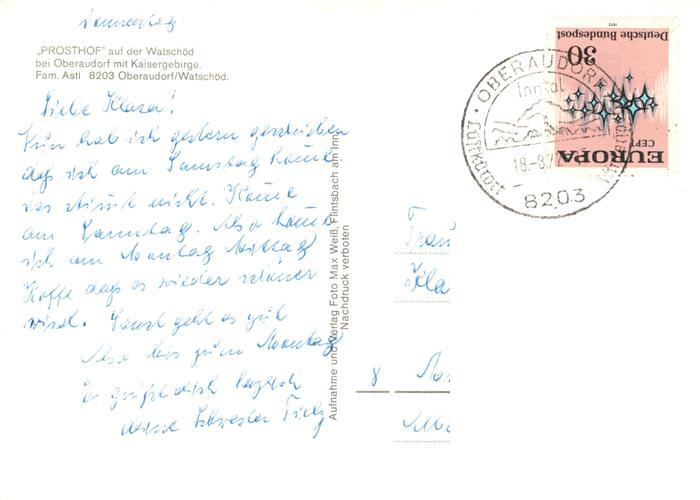 Donnerstag.
„PROSTHOF" auf der Watschöd
bei Oberaudorf mit Kaisergebirge.
Fam. Astl 8203 Oberaudorf/Watschöd.
Liebe Klara!
Nun hab ich gestern geschrieben
das ich am Samstag komme
das stimmt nicht. Komme
am Sonntag. Also komme
ich am Montag Mittag
Hoffe das es wieder schöner
wird. Sonst geht es gut
Also bis zum Montag
grüßt dich herzlich
deine Schwester
Aufnahme und Verlag Foto Max Weiß, Flintsbach am Inn
Nachdruck verboten
Deutsche Bundespost
30
1972
CEPT
EUROPA
OBERAUDORF
Inntal
Luftkurort
8203
Frau
Kla
8